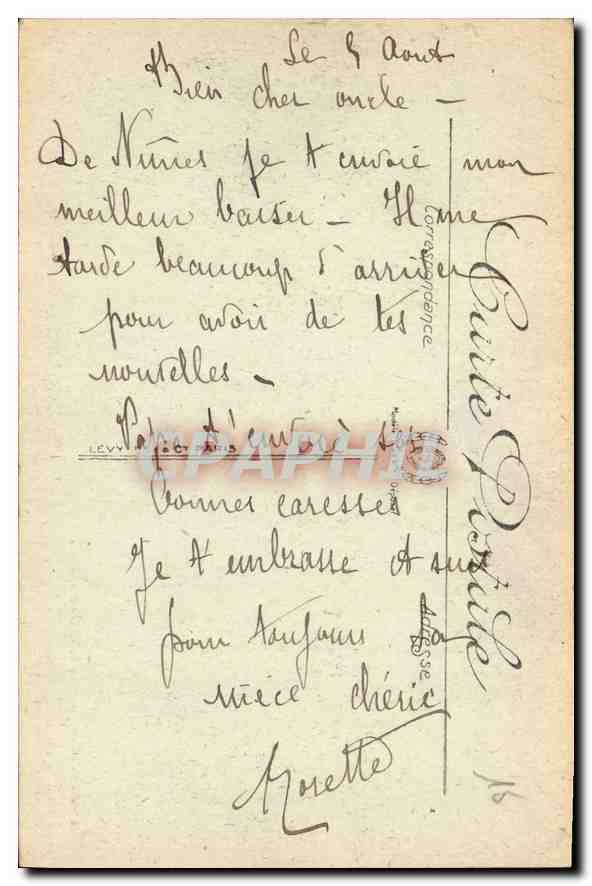 Le 5 Aout
Bien cher oncle -
De Nimes je t envoie mon
meilleur baiser - Il me
tarde beaucoup d'arriver
pour avoir de tes
nouvelles -
Papa t'envoie ses
bonnes caresses
Je t'embrasse et suis
pour toujours ta
nièce chérie
Rosette
Carte Postale
Correspondance
Adresse
LEVY
PARIS
CPAPHIL
15